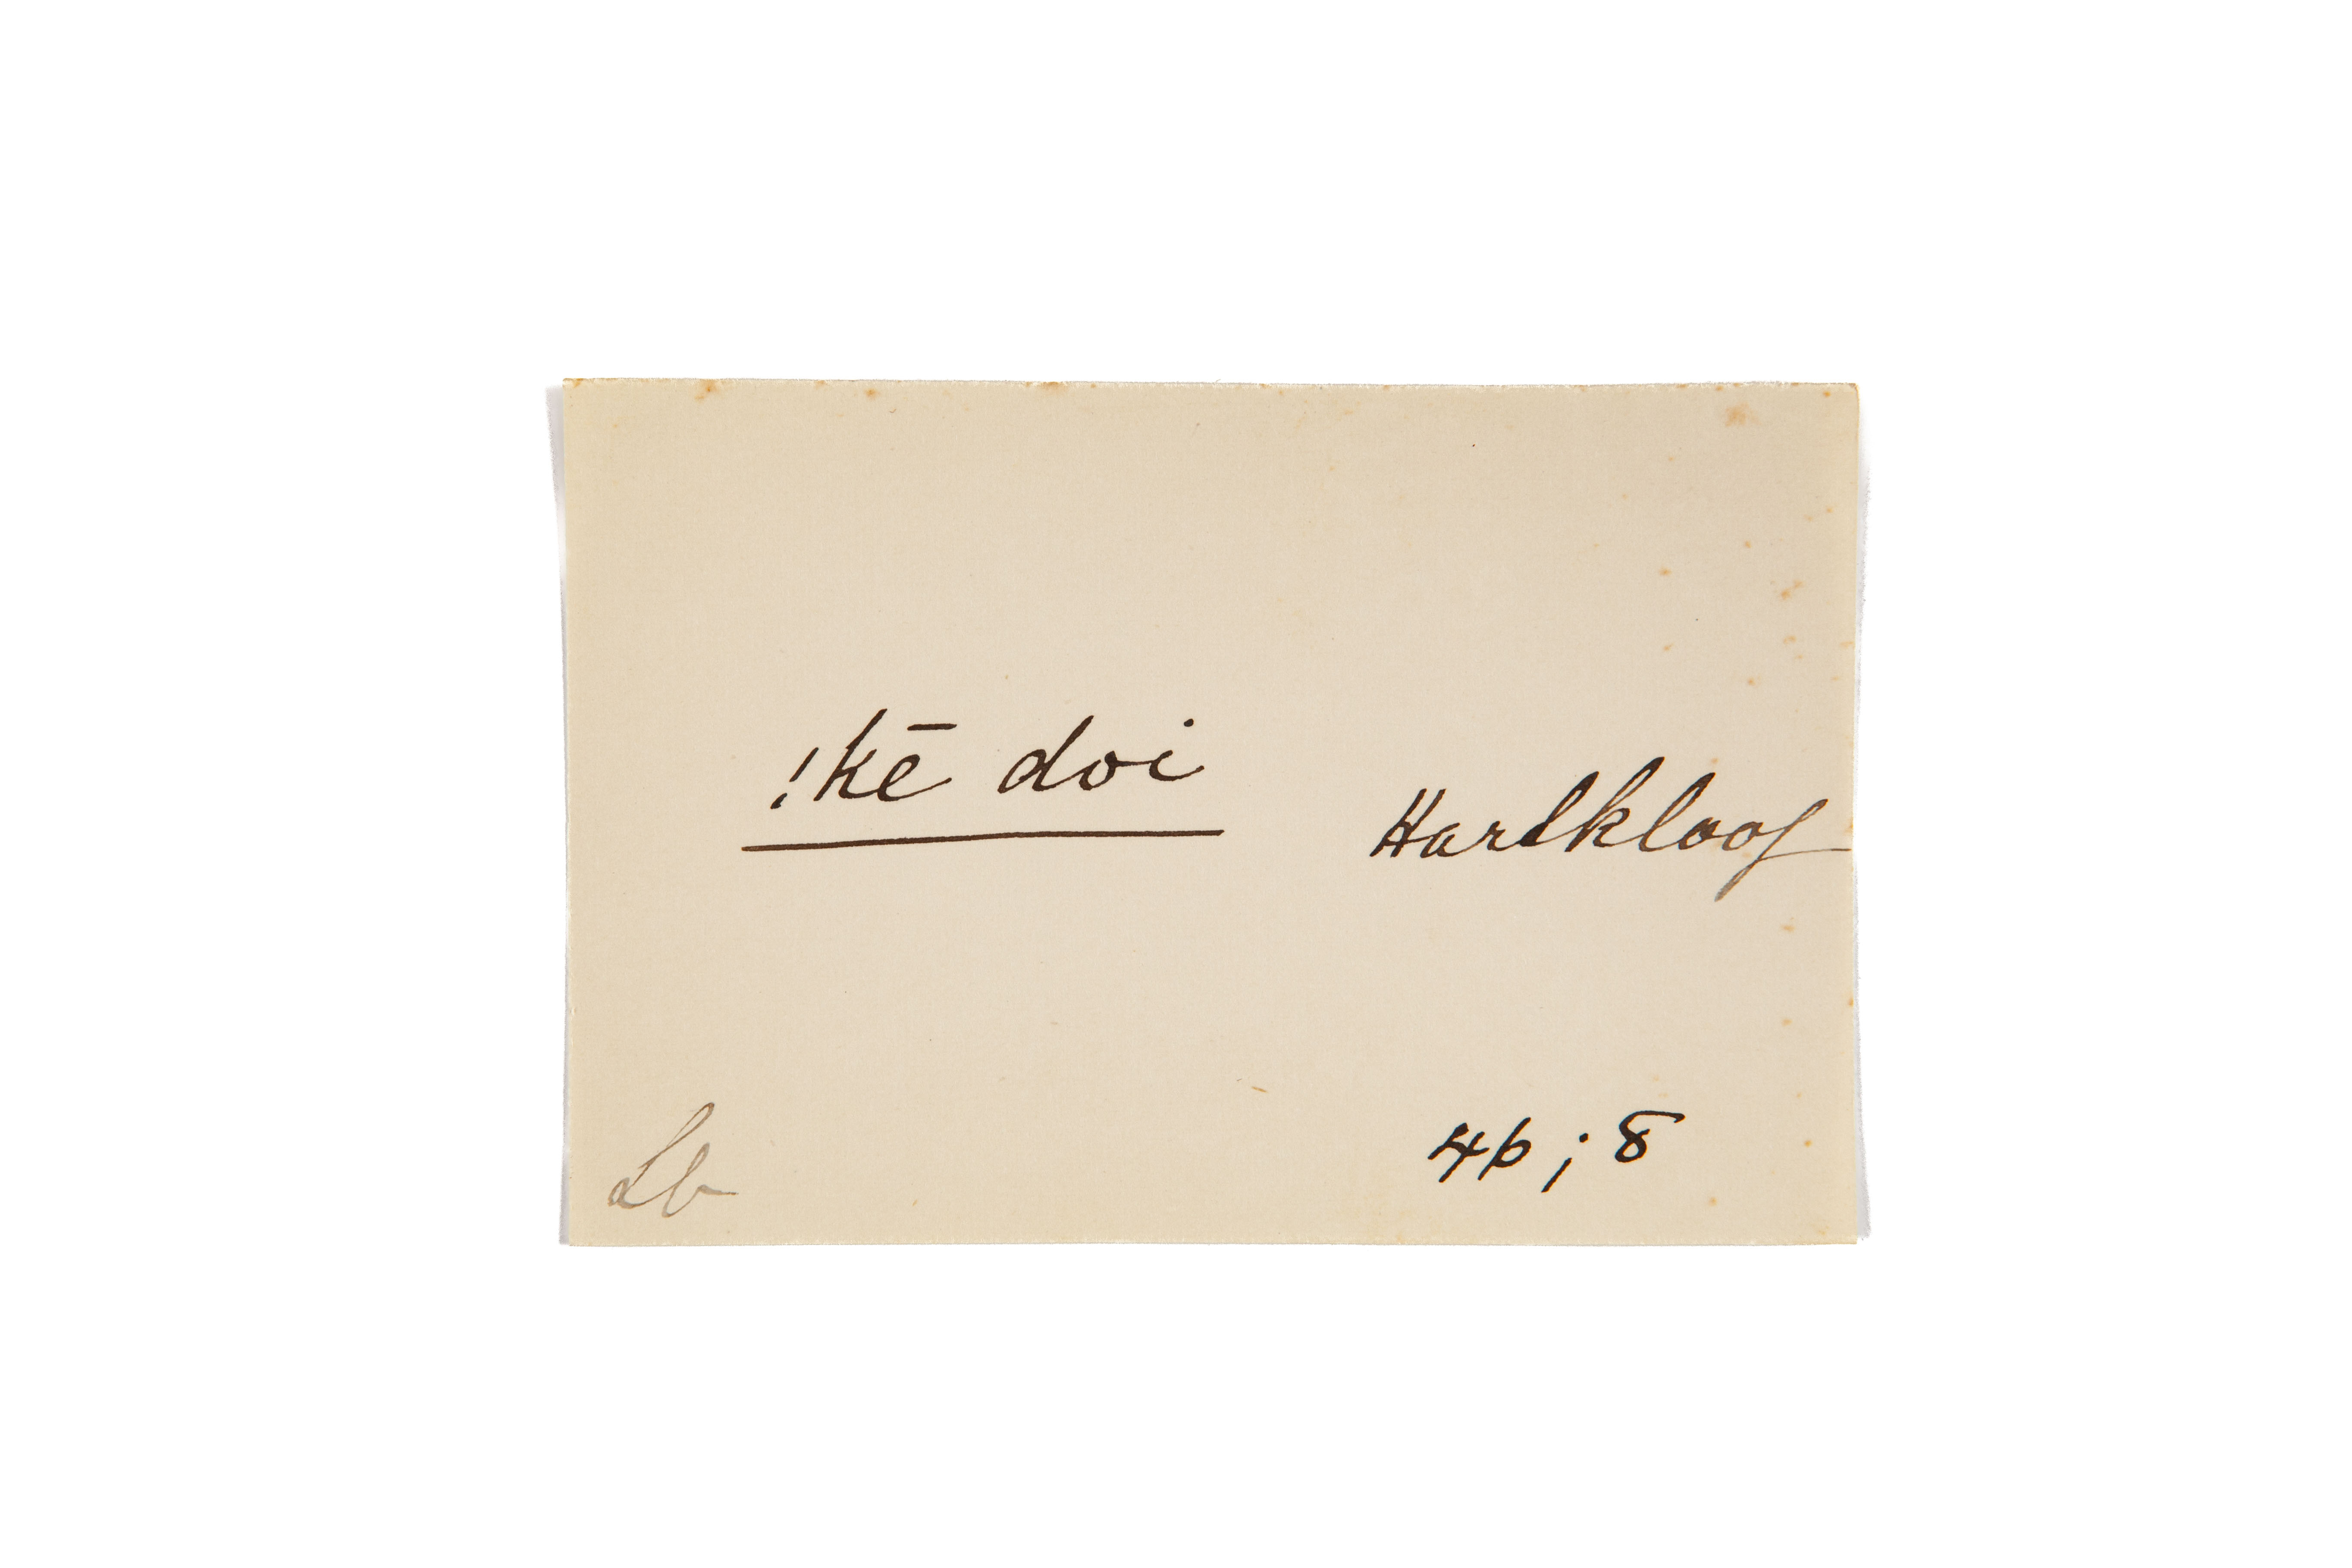 !kē doi
Hardkloof
Lb
46 ; 8